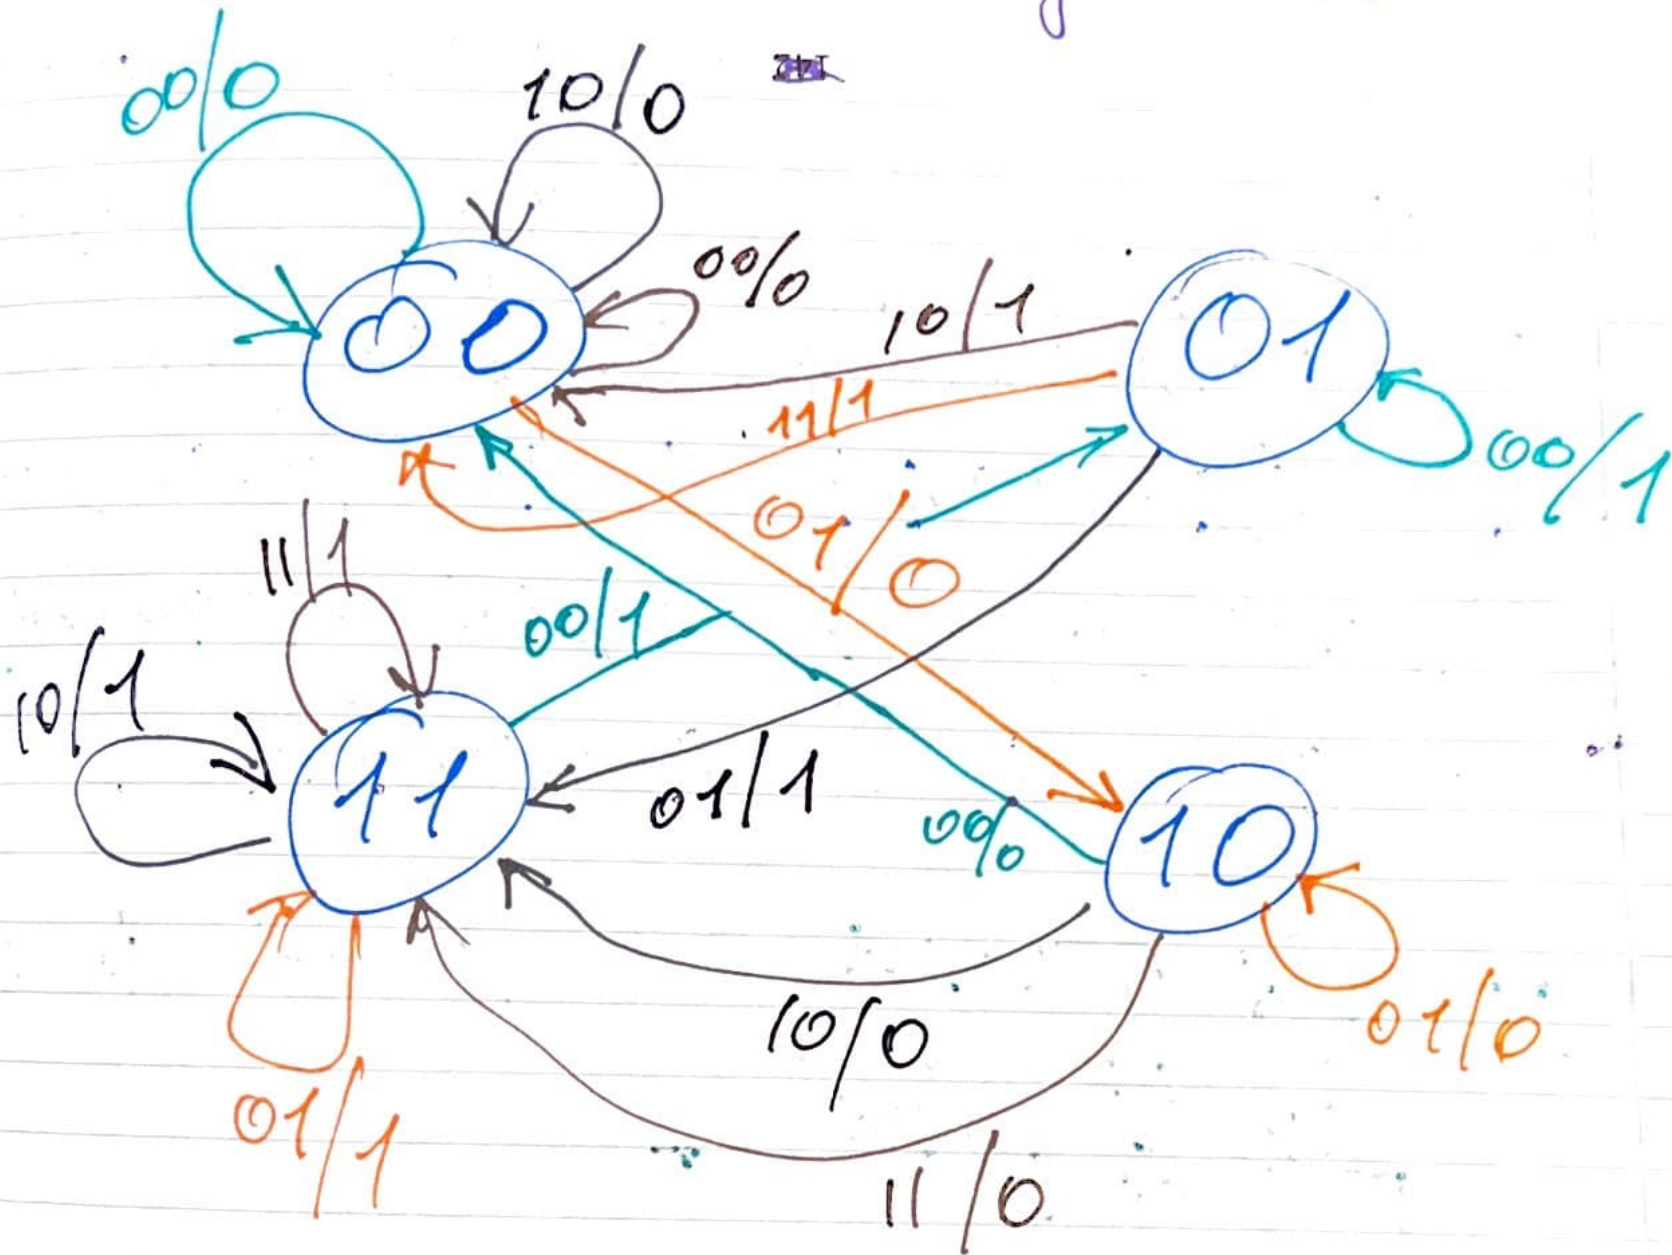 00/0
10/0
00/0
00
10/1
01
11/1
00/1
01/0
11/1
00/1
10/1
11
01/1
00/0
10
10/0
01/0
01/1
11/0